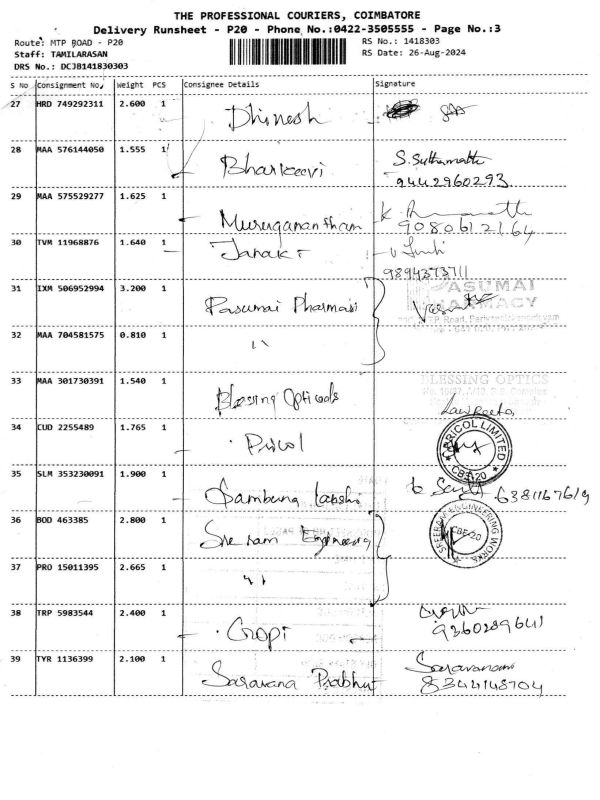 THE PROFESSIONAL COURIERS, COIMBATORE
Delivery Runsheet - P20 - Phone No.:0422-3505555 - Page No.:3
Route: MTP ROAD - P20
RS No.: 1418303
Staff: TAMILARASAN
RS Date: 26-Aug-2024
DRS No.: DCJB141830303
S No Consignment No. Weight PCS Consignee Details Signature
27 HRD 749292311 2.600 1 Dhinesh
28 MAA 576144050 1.555 1 Bharkeevi S. Suthamathi
9442960293
29 MAA 575529277 1.625 1 Muruganantham K
9080612164
30 TVM 11968876 1.640 1 Janaki
9894373711
31 IXM 506952994 3.200 1 Pasumai Pharmasi
PASUMAI
PHARMACY
32 MAA 704581575 0.810 1 11
33 MAA 301730391 1.540 1 Blessing Opticals
BLESSING OPTICS
34 CUD 2255489 1.765 1 Pricol
PRICOL LIMITED
CBE-20
35 SLM 353230091 1.900 1 Sambung Lakshi 6381167619
36 BOD 463385 2.800 1 Sreeram Engineering
SREERAM ENGINEERING WORKS
CBE-20
37 PRO 15011395 2.665 1 11
38 TRP 5983544 2.400 1 Gopi
9360289641
39 TYR 1136399 2.100 1 Saravana Prabhu Saravanan
8344148704